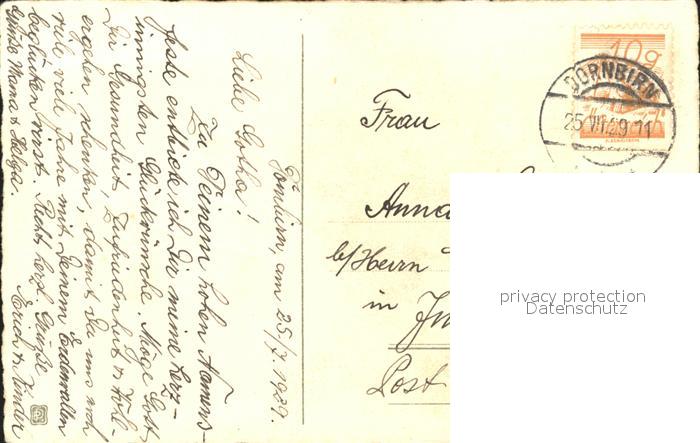 Dornbirn, am 25/7. 1929.
Liebe Gotha!
Zu Deinem hohen Namens-
feste entbiete ich Dir meine herz-
innigsten Glückwünsche. Möge Gott
Dir Gesundheit, Zufriedenheit &
ergehen schenken, damit Du uns noch
viele viele Jahre mit Deinem Erdenwallen
beglücken wirst. Recht herzl. Grüße
Erich & Kinder
Mama & Helga.
10g
DORNBIRN
25.VII.29.11
Frau
Anna
b/Herrn
in
Post
privacy protection
Datenschutz